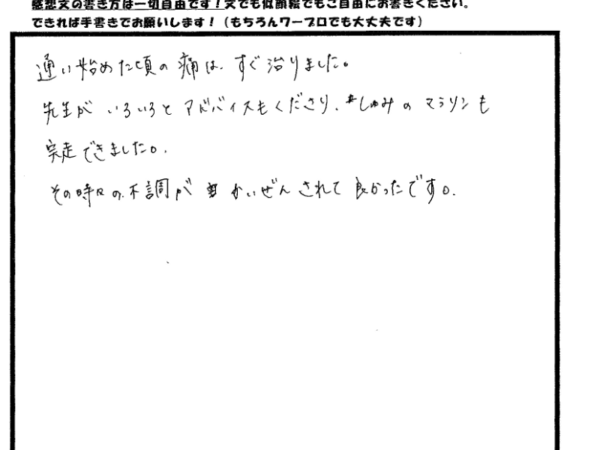 感想文の書き方は一切自由です！文でも似顔絵でもご自由にお書きください。
できれば手書きでお願いします！（もちろんワープロでも大丈夫です）
通い始めた頃の痛は、すぐ治りました。
先生が いろいろと アドバイスもくださり、しゅみの マラソンも
完走できました。
その時々の不調が かいぜん されて 良かったです。